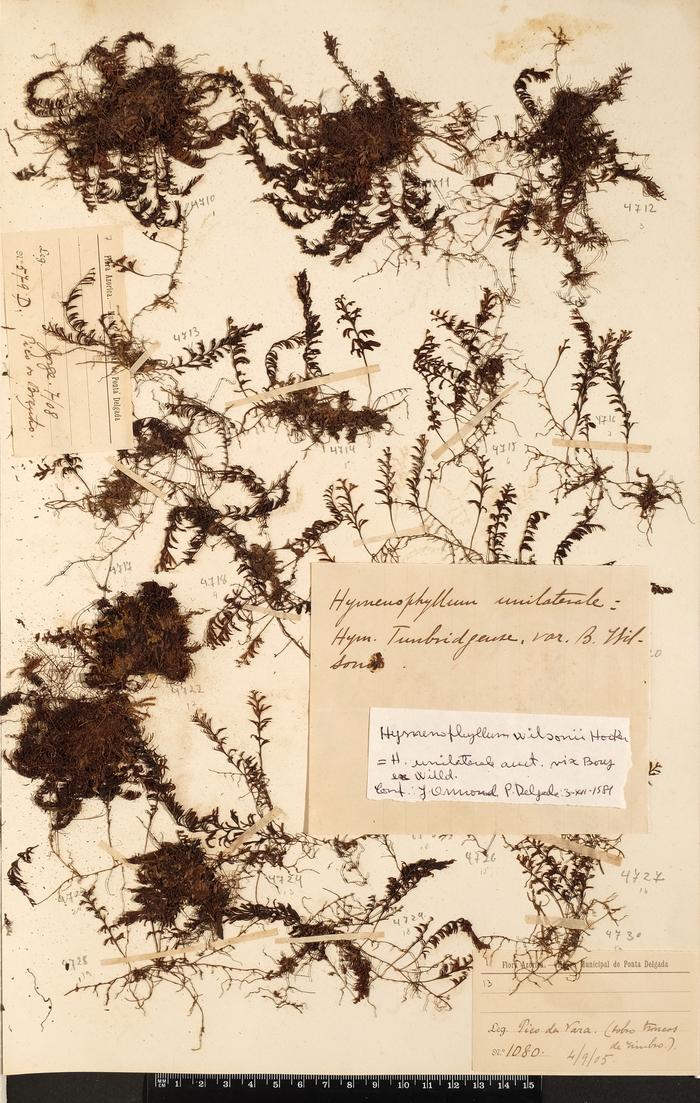 4710
1
4711
4712
3
7
Flora Azorica.
Ponta Delgada
Leg.
N.º 579 D.
4713
4714
5
4715
6
4716
4717
4718
9
4722
Hymenophyllum unilaterale =
Hym. Tunbridgense, var. B. Wil-
sonii.
Hymenophyllum wilsonii Hooker
= H. unilaterale auct. vix Bory
ex Willd.
Conf.: J. Ormond P. Delgada: 3-XII-1981
4724
4726
15
4727
16
4728
19
4729
18
4730
Flora Azorica. Municipal de Ponta Delgada
13
Leg. Pico da Vara. (sobre troncos
de zimbro.)
N.º 1080. 4/9/05.
MM
CM
1 2 3 4 5 6 7 8 9 10 11 12 13 14 15